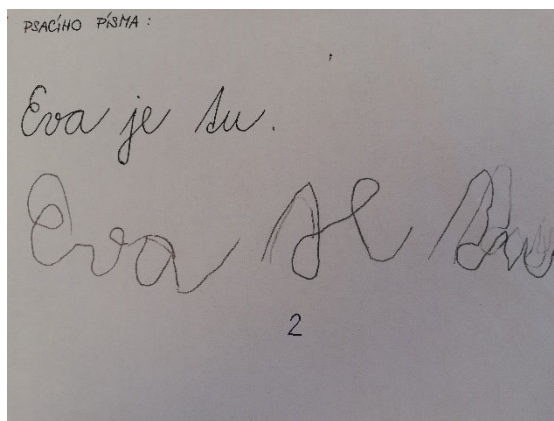 PSACÍHO PÍSMA :
Eva je tu.
Eva
2